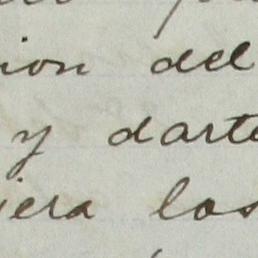 ion del
y darte
iera los